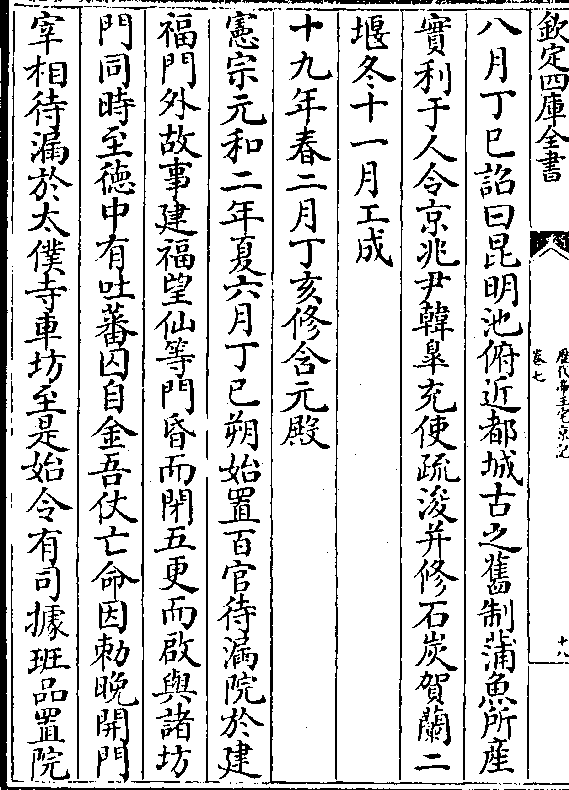 欽定四庫全書
歷代帝王宅京記
卷七
十八
八月丁巳詔曰昆明池俯近都城古之舊制蒲魚所産
實利于人令京兆尹韓臯充使疏浚并修石炭賀蘭二
堰冬十一月工成
十九年春二月丁亥修含元殿
憲宗元和二年夏六月丁巳朔始置百官待漏院於建
福門外故事建福望仙等門昏而閉五更而啟與諸坊
門同時至徳中有吐蕃囚自金吾仗亡命因勅晚開門
宰相待漏於太僕寺車坊至是始令有司據班品置院